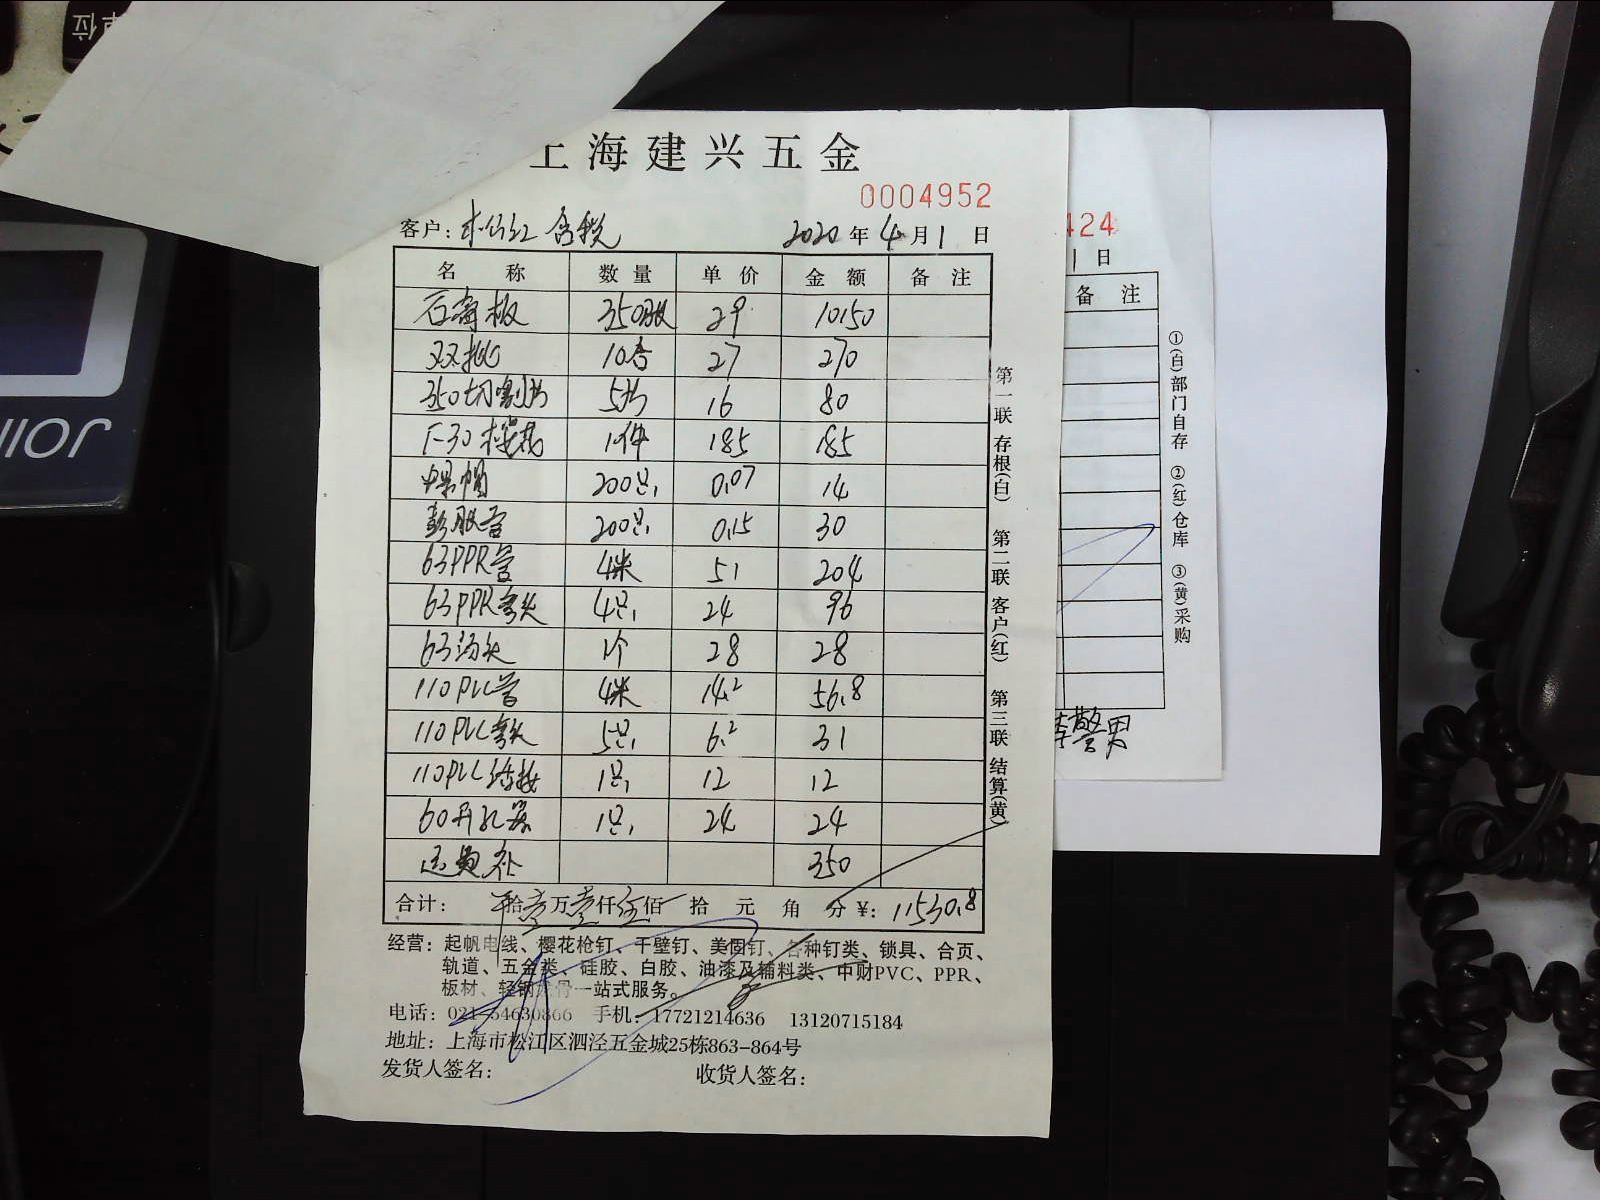 单位
JOllO
上海建兴五金
0004952
客户: 含税 2020 年 4 月 1 日
名 称 数 量 单 价 金 额 备 注
石膏板 350张 29 10150
双批 10合 27 270
350切割片 5片 16 80
F-30 樱花 1件 185 185
螺帽 200只 0.07 14
彭胀管 200只 0.15 30
63PPR管 4米 51 204
63PPR弯头 4只 24 96
63汤头 1个 28 28
110PVC管 4米 14.2 56.8
110PVC弯头 5只 6.2 31
110PVC活接 1只 12 12
60开孔器 1只 24 24
运费补 350
合计: 拾壹万壹仟伍佰 拾 元 角 分 ¥: 11530.8
经营: 起帆电线、樱花枪钉、干壁钉、美固钉、各种钉类、锁具、合页、
轨道、五金类、硅胶、白胶、油漆及辅料类、中财PVC、PPR、
板材、轻钢龙骨一站式服务。
电话: 021-54630866 手机: 17721214636 13120715184
地址: 上海市松江区泗泾五金城25栋863-864号
发货人签名: 收货人签名:
第一联 存根(白) 第二联 客户(红) 第三联 结算(黄)
424
1 日
备 注
①(白)部门自存 ②(红)仓库 ③(黄)采购
李警男